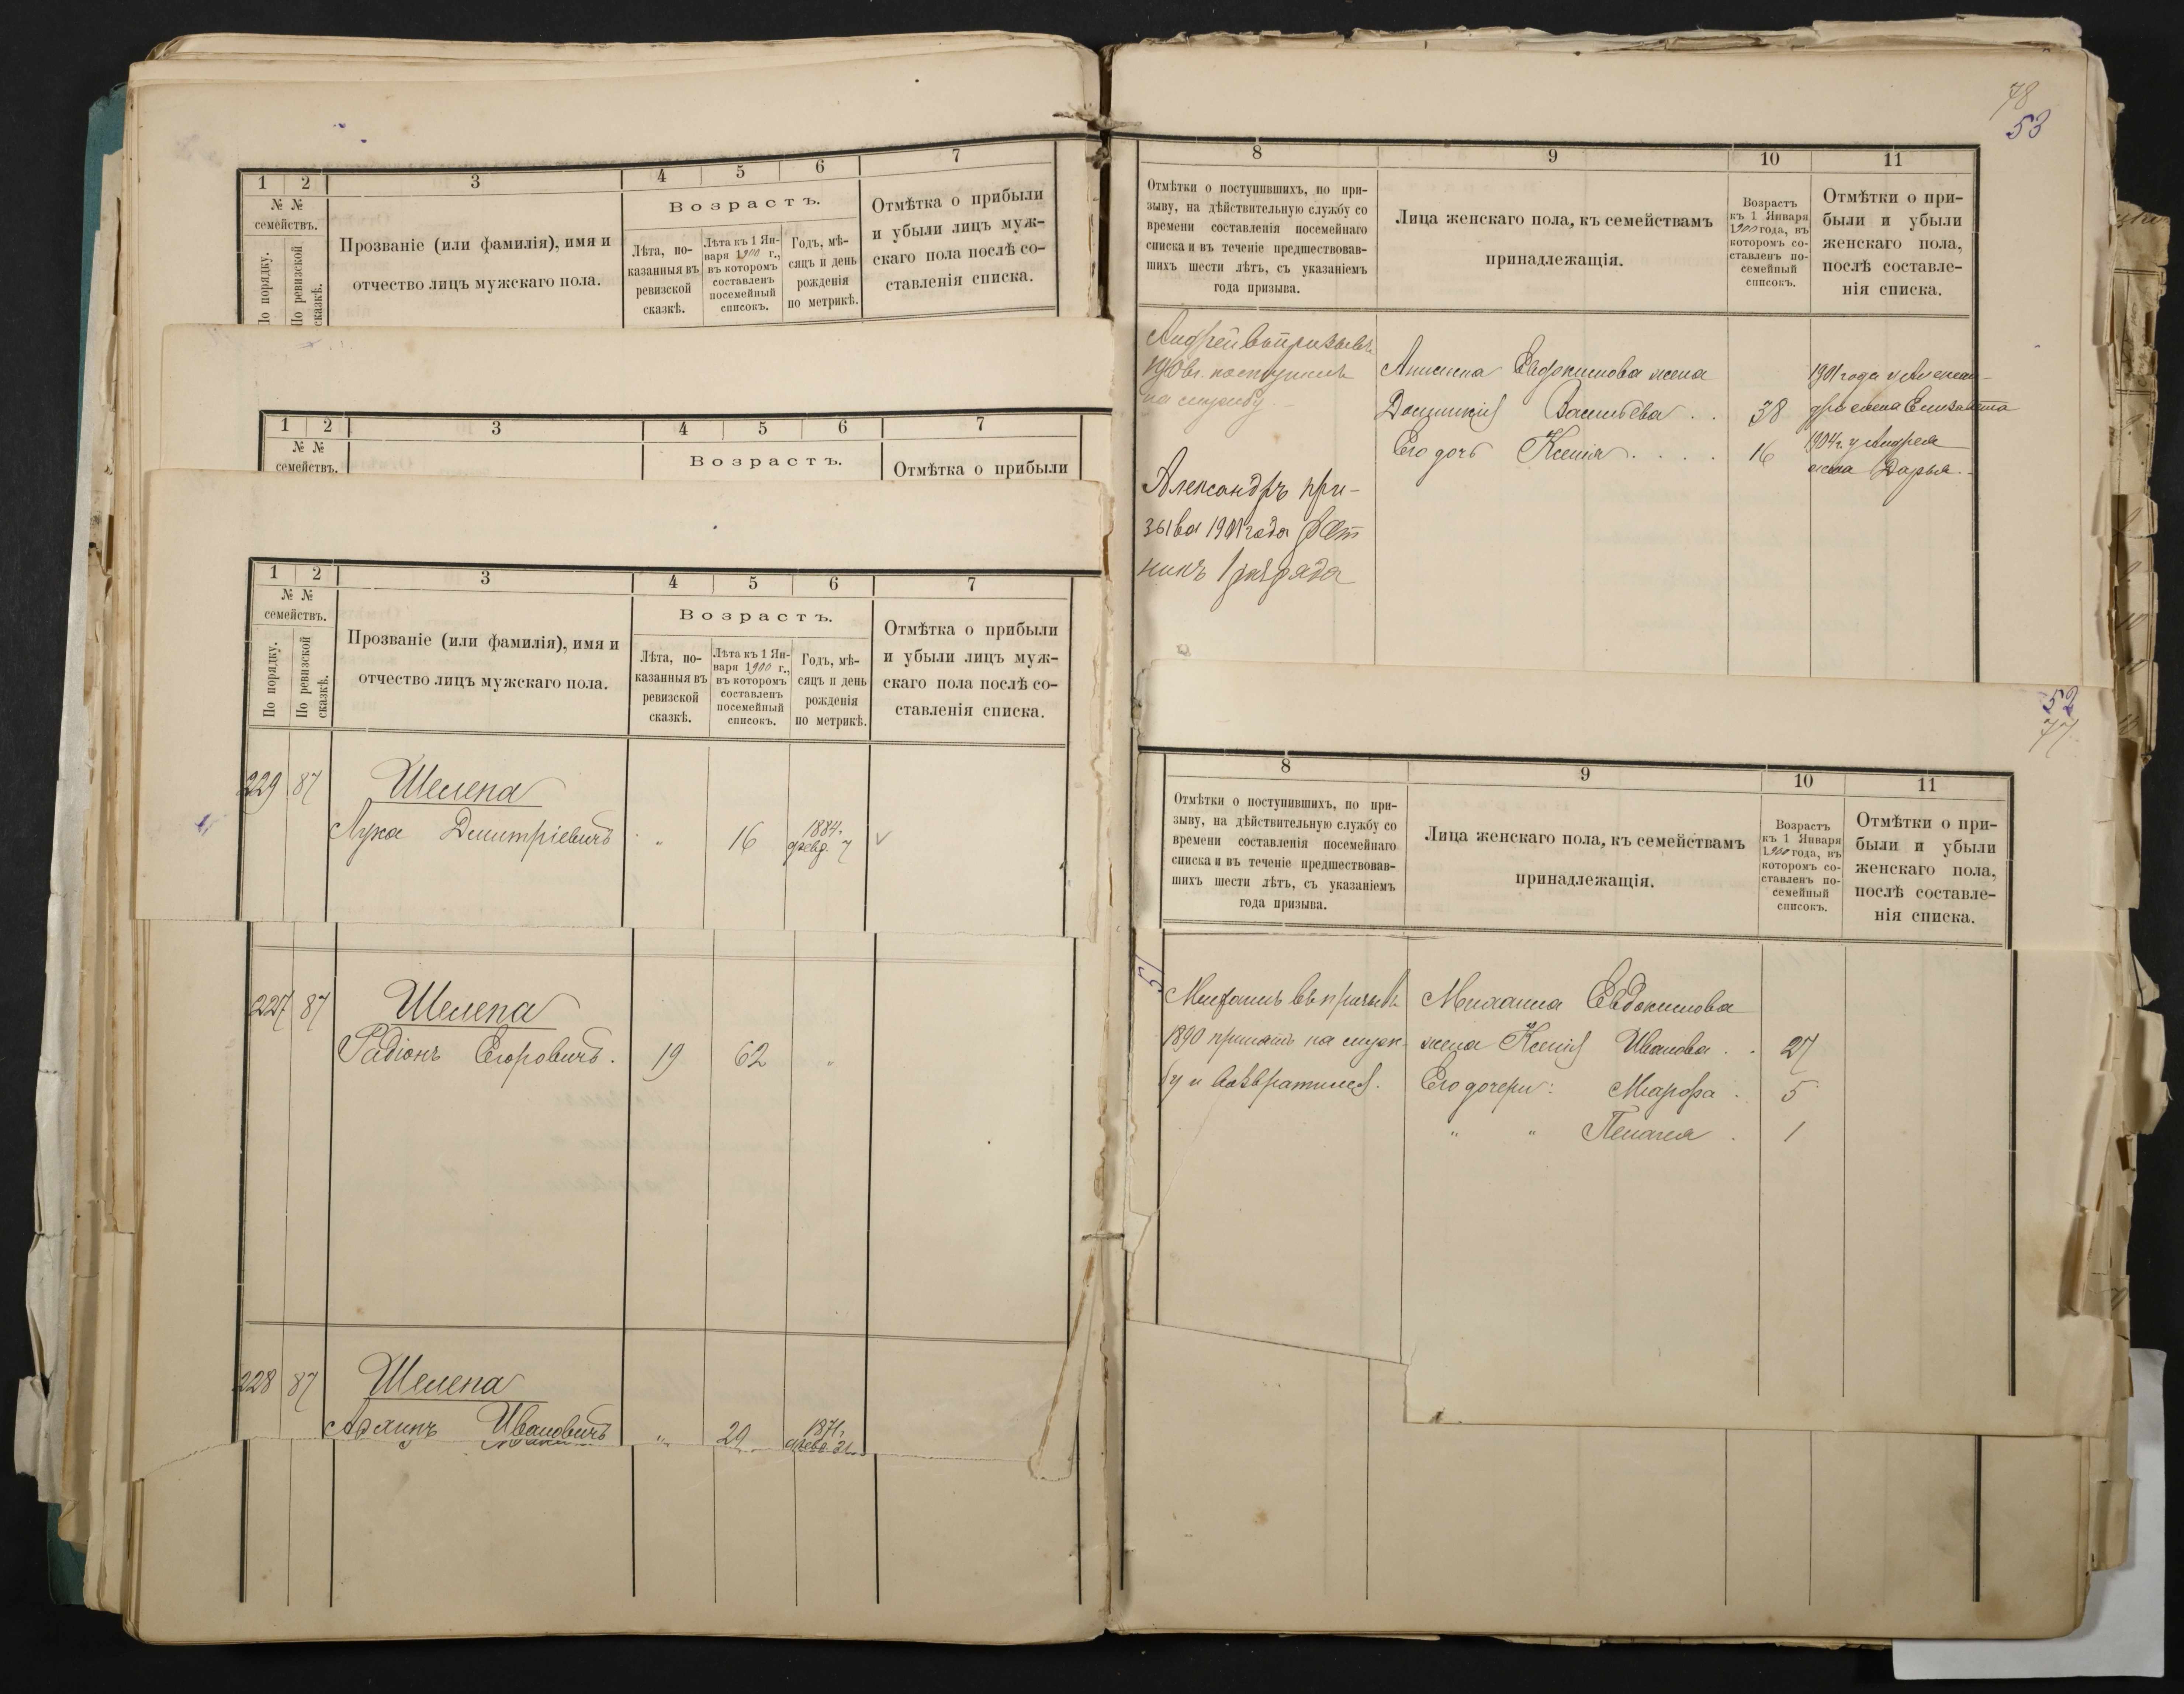 1 2 3 4 5 6 7
№ №
семействъ.
По порядку.
По ревизской
сказкѣ.
Прозваніе (или фамилія), имя и
отчество лицъ мужскаго пола.
Возрастъ.
Лѣта, по-
казанныя въ
ревизской
сказкѣ.
Лѣта къ 1 Ян-
варя 1900 г.,
въ которомъ
составленъ
посемейный
списокъ.
Годъ, мѣ-
сяцъ и день
рожденія
по метрикѣ.
Отмѣтка о прибыли
и убыли лицъ муж-
скаго пола послѣ со-
ставленія списка.
1 2 3 4 5 6 7
№ №
семействъ.
Возрастъ.
Отмѣтка о прибыли
1 2 3 4 5 6 7
№ №
семействъ.
По порядку.
По ревизской
сказкѣ.
Прозваніе (или фамилія), имя и
отчество лицъ мужскаго пола.
Возрастъ.
Лѣта, по-
казанныя въ
ревизской
сказкѣ.
Лѣта къ 1 Ян-
варя 1900 г.,
въ которомъ
составленъ
посемейный
списокъ.
Годъ, мѣ-
сяцъ и день
рожденія
по метрикѣ.
Отмѣтка о прибыли
и убыли лицъ муж-
скаго пола послѣ со-
ставленія списка.
229 87 Шелепа
Лука Дмитріевичъ " 16 1884. февр. 7
227 87 Шелепа
Радіонъ Егоровичъ. 19 62 "
228 87 Шелепа
Ивановичъ " 29 1871.
78
53
8 9 10 11
Отмѣтки о поступившихъ, по при-
зыву, на дѣйствительную службу со
времени составленія посемейнаго
списка и въ теченіе предшествовав-
шихъ шести лѣтъ, съ указаніемъ
года призыва.
Лица женскаго пола, къ семействамъ
принадлежащія.
Возрастъ
къ 1 Января
1900 года, въ
которомъ со-
ставленъ по-
семейный
списокъ.
Отмѣтки о при-
были и убыли
женскаго пола,
послѣ составле-
нія списка.
Андрей въ призывъ
поступилъ
на службу
Александръ при-
зыва 1901 года рат
никъ 1 разряда
Евдокимова жена
Васильева . . 38
Его дочь Ксенія . . . . 16
1901 года у Алексан-
дра жена Елизавета
1904 г. у Андрея
жена Дарья.
52
77
8 9 10 11
Отмѣтки о поступившихъ, по при-
зыву, на дѣйствительную службу со
времени составленія посемейнаго
списка и въ теченіе предшествовав-
шихъ шести лѣтъ, съ указаніемъ
года призыва.
Лица женскаго пола, къ семействамъ
принадлежащія.
Возрастъ
къ 1 Января
1900 года, въ
которомъ со-
ставленъ по-
семейный
списокъ.
Отмѣтки о при-
были и убыли
женскаго пола,
послѣ составле-
нія списка.
51
Михаилъ въ призывъ
1890 принятъ на служ-
бу и возвратился.
Михаила Евдокимова
жена Ксенія Иванова . . 27
Его дочери: Марфа . 5
" " Пелагея . 1